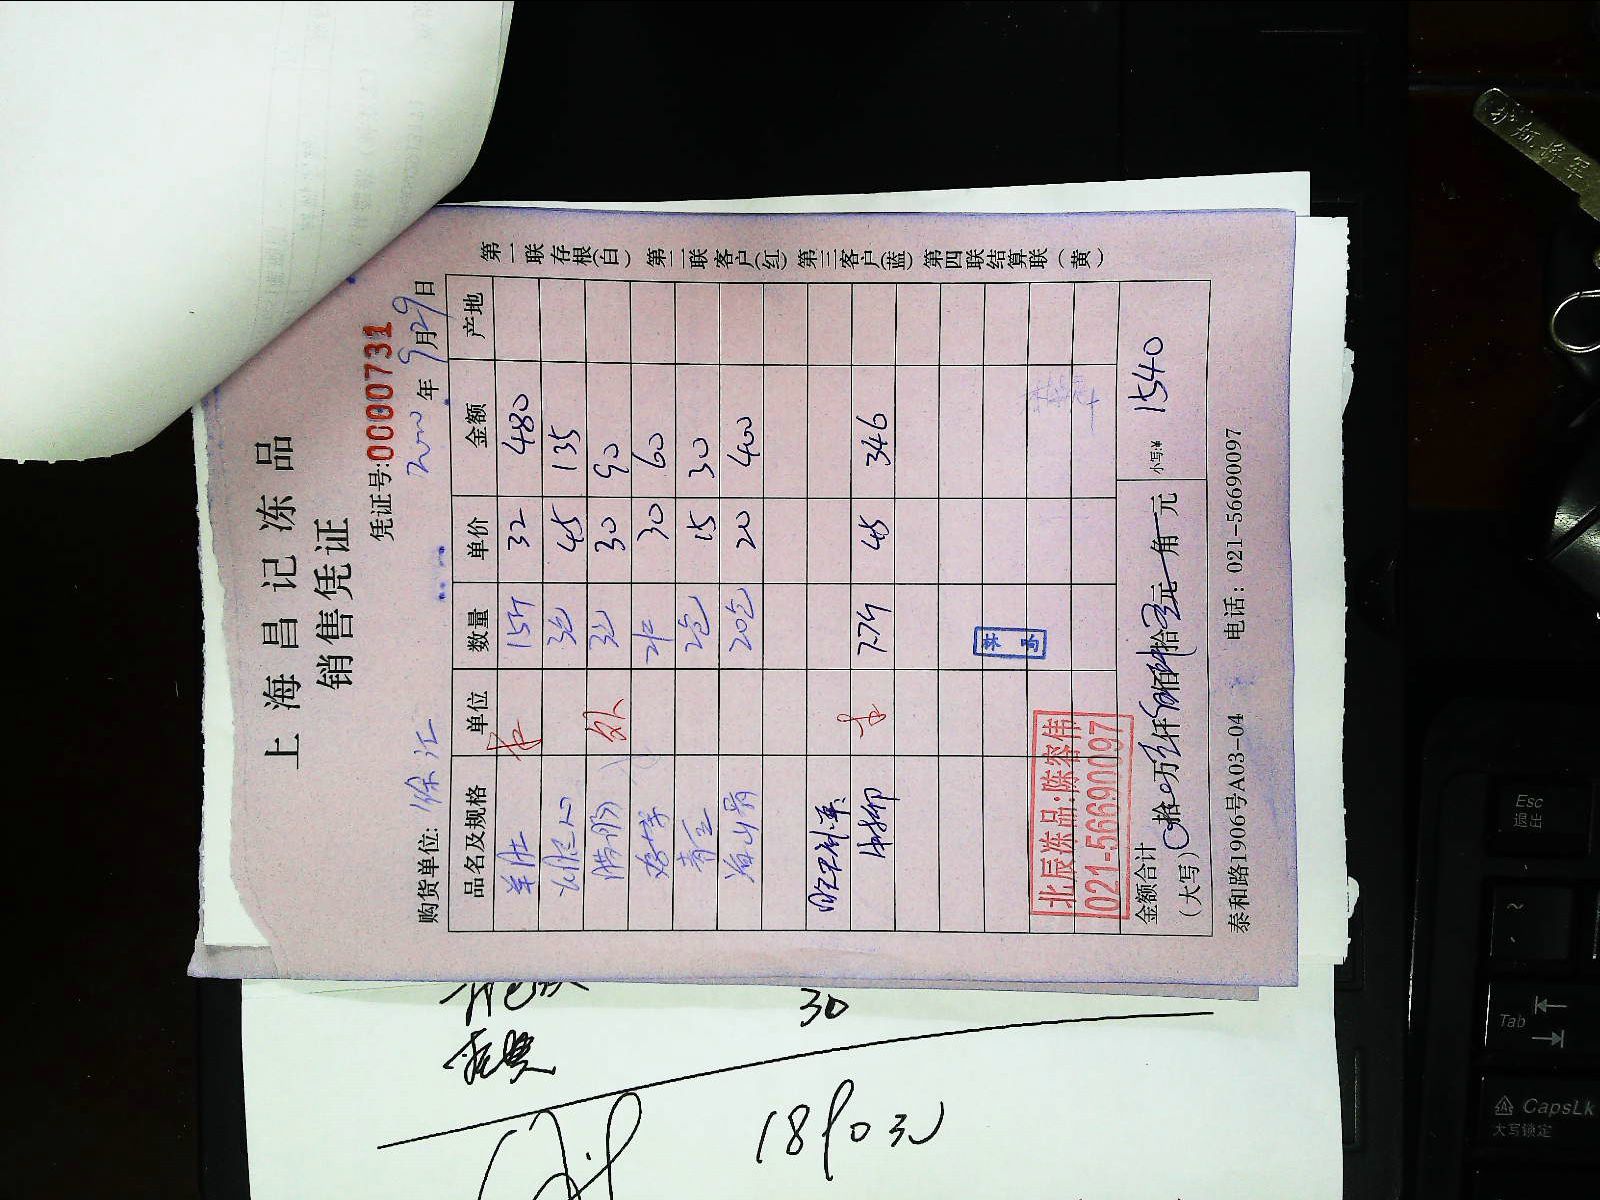 上海昌记冻品
销售凭证
凭证号:0000731
购货单位: 徐汇 2000年9月29日
品名及规格 单位 数量 单价 金额 产地
羊肚 15斤 32 480
3包 45 135
3包 30 90
30 60
2包 15 30
20包 20 400
牛柳 7.7斤 45 346
北辰冻品:陈容伟
021-56690097
金额合计
(大写) 拾 万 仟 佰 拾 元 角 元 小写:¥ 1540
泰和路1906号A03-04 电话: 021-56690097
第一联存根(白) 第二联客户(红) 第三客户(蓝) 第四联结算联(黄)
30
1890元
护航将军
Esc
退出
~
Tab
CapsLk
大写锁定